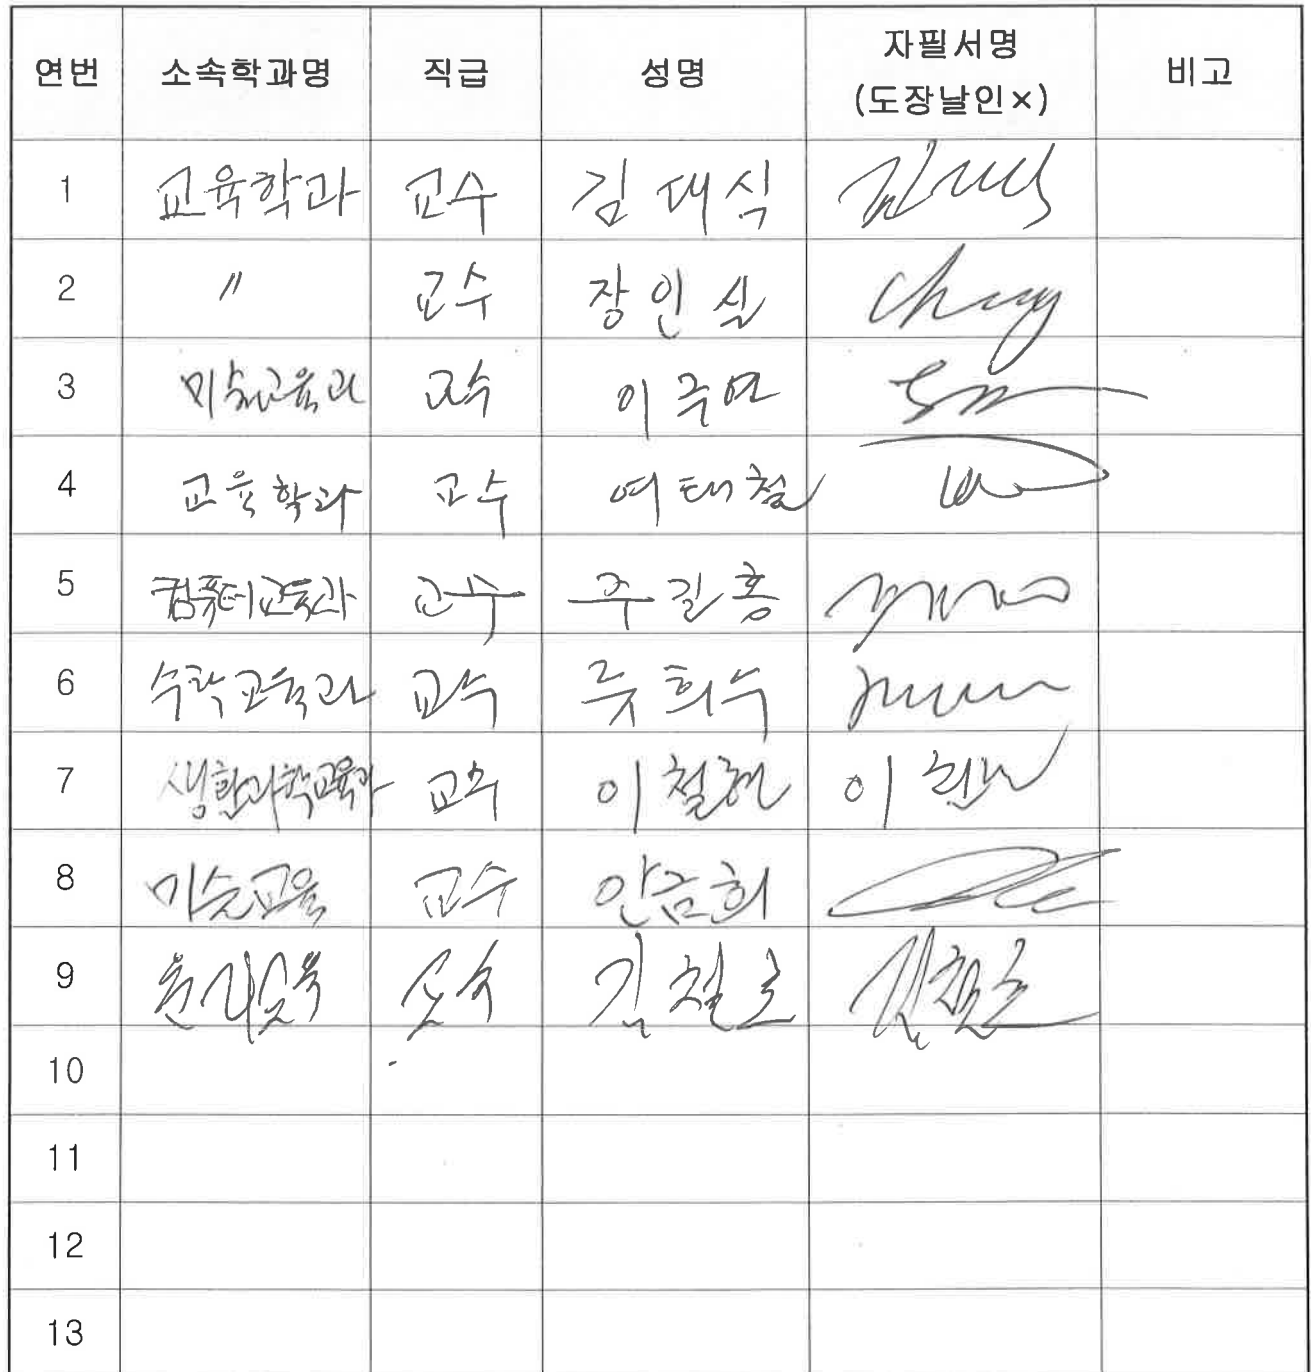 연번 소속학과명 직급 성명 자필서명 비고
(도장날인×)
1 교육학과 교수 김대식
2 〃 교수 장인실
3 미술교육과 교수 이주연
4 교육학과 교수 여태철
5 컴퓨터교육과 교수 주길홍
6 수학교육과 교수 류희수
7 생활과학교육과 교수 이철현 이철현
8 미술교육 교수 안금희
9 윤리교육 교수 김철호 김철호
10
11
12
13